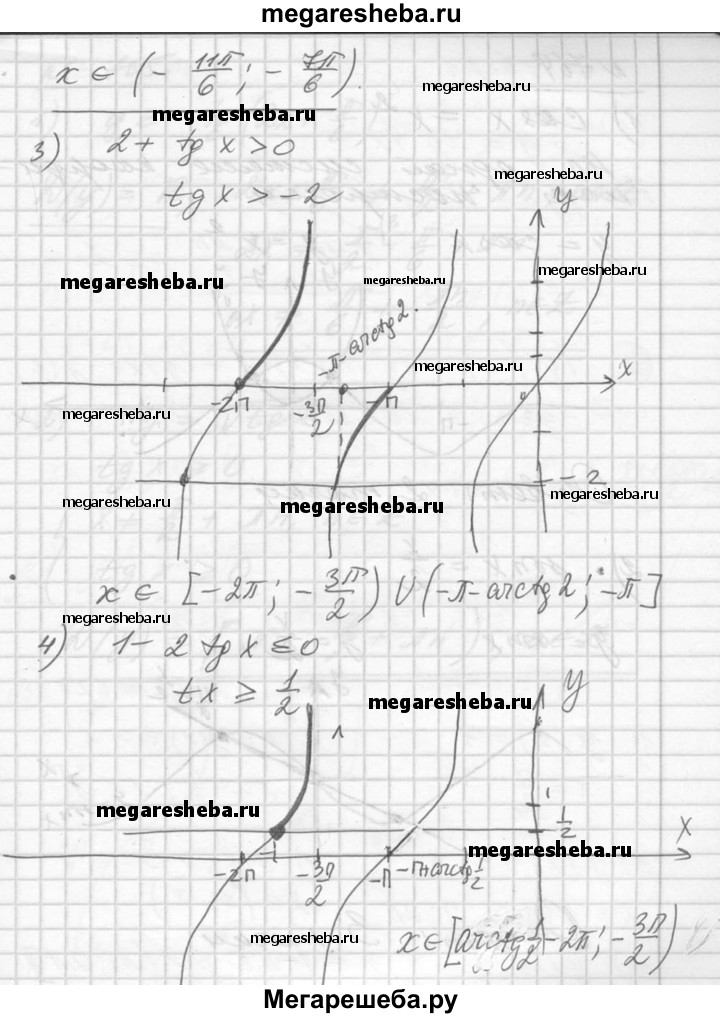 megaresheba.ru
x ∈ (- 11π/6 ; - 7π/6).
megaresheba.ru
megaresheba.ru
3) 2 + tg x > 0
megaresheba.ru
tg x > -2
y
megaresheba.ru
megaresheba.ru
megaresheba.ru
-π-arctg 2.
megaresheba.ru
x
-2π
-3π/2
-π
megaresheba.ru
-2
megaresheba.ru
megaresheba.ru
megaresheba.ru
x ∈ [-2π; -3π/2) ∪ (-π-arctg 2; -π]
megaresheba.ru
4) 1 - 2 tg x ≤ 0
t x ≥ 1/2
megaresheba.ru
y
megaresheba.ru
1/2
x
megaresheba.ru
-2π
-3π/2
-π
-π+arctg 1/2
megaresheba.ru
x ∈ [arctg 1/2 - 2π; -3π/2)
Мегарешеба.ру